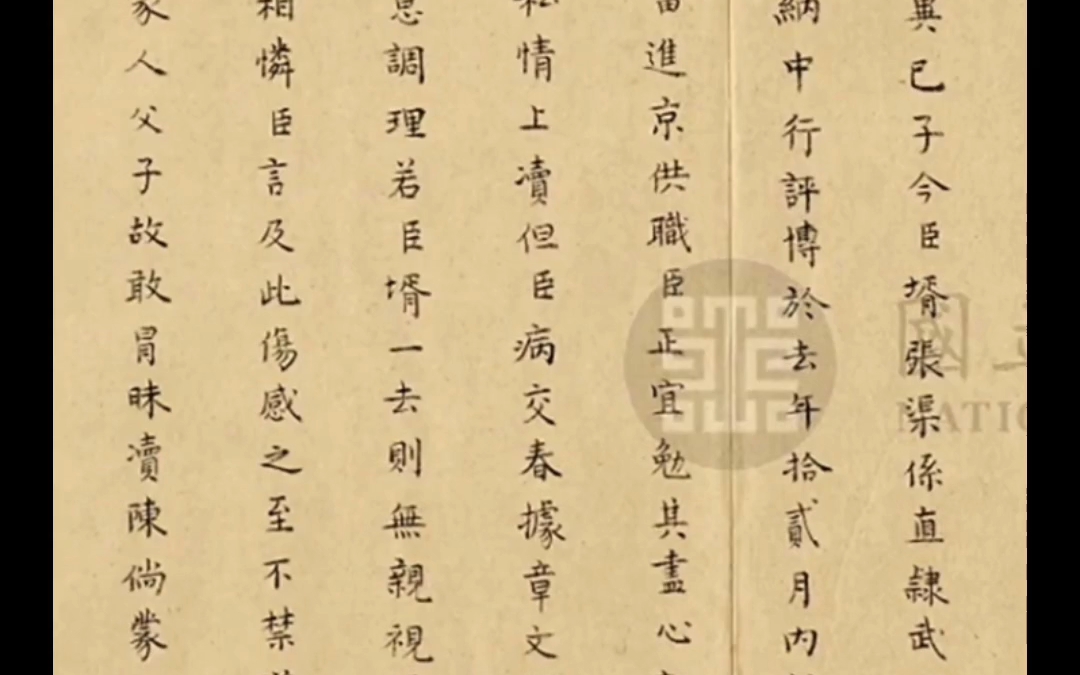 異已子今臣壻張渠係直隸武
納中行評博於去年拾貳月内
當進京供職臣正宜勉其盡心
私情上瀆但臣病交春據章文
息調理若臣壻一去則無親視
相憐臣言及此傷感之至不禁
家人父子故敢冒昧瀆陳倘蒙
國立
NATIO